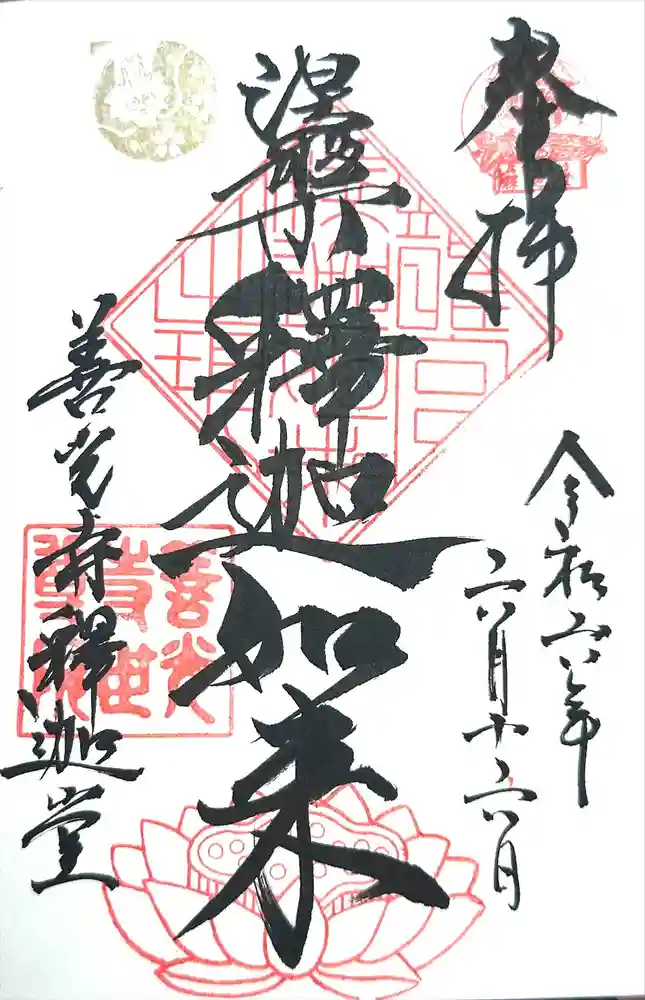 奉拝
令和六年
六月十六日
涅槃釋迦如来
善光寺釋迦堂
善光
寺世
尊院